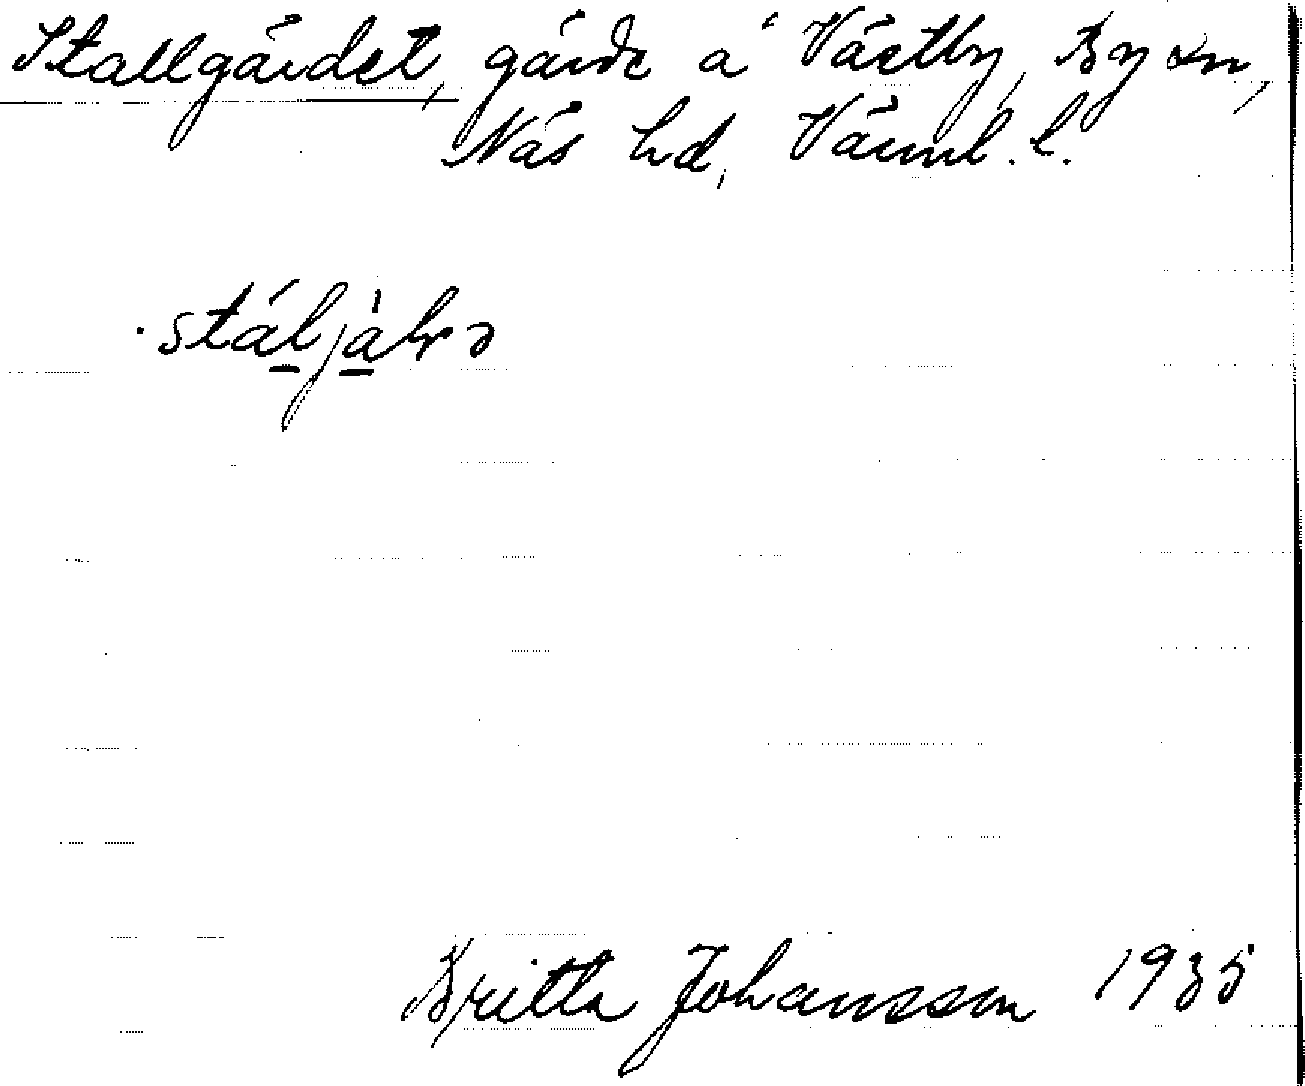 Stallgärdet, gärde å Västby, By sn,
Näs hd, Värml. l.
Britta Johansson 1935